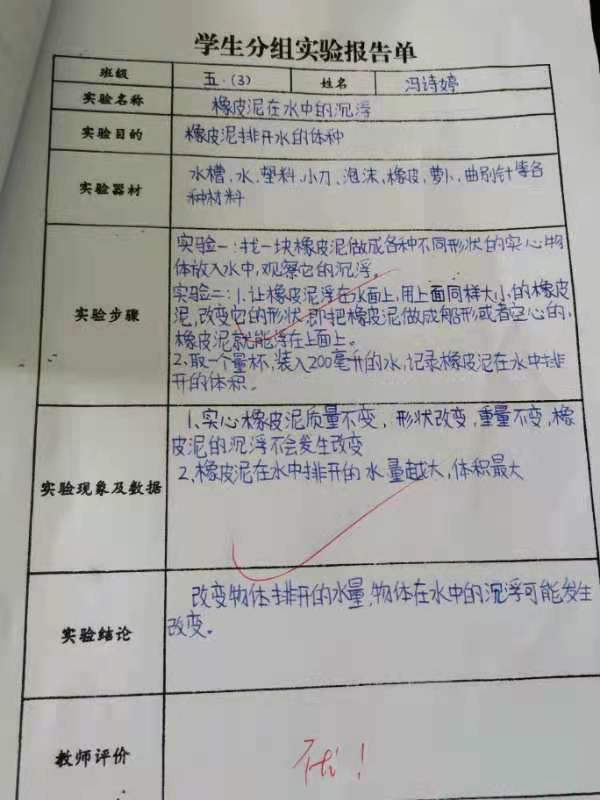 学生分组实验报告单
班级 五.(3) 姓名 冯诗婷
实验名称 橡皮泥在水中的沉浮
实验目的 橡皮泥排开水的体种
实验器材 水槽、水、塑料、小刀、泡沫、橡皮、萝卜、曲别针等各
种材料
实验步骤
实验一:找一块橡皮泥做成各种不同形状的实心物
体放入水中,观察它的沉浮。
实验二:1.让橡皮泥浮在水面上,用上面同样大小的橡皮
泥,改变它的形状,即把橡皮泥做成船形或者空心的,
橡皮泥就能浮在上面上。
2、取一个量杯,装入200毫升的水,记录橡皮泥在水中排
开的体积。
实验现象及数据
1、实心橡皮泥质量不变,形状改变,重量不变,橡
皮泥的沉浮不会发生改变
2、橡皮泥在水中排开的水量越大,体积最大
实验结论
改变物体排开的水量,物体在水中的沉浮可能发生
改变。
教师评价 优!